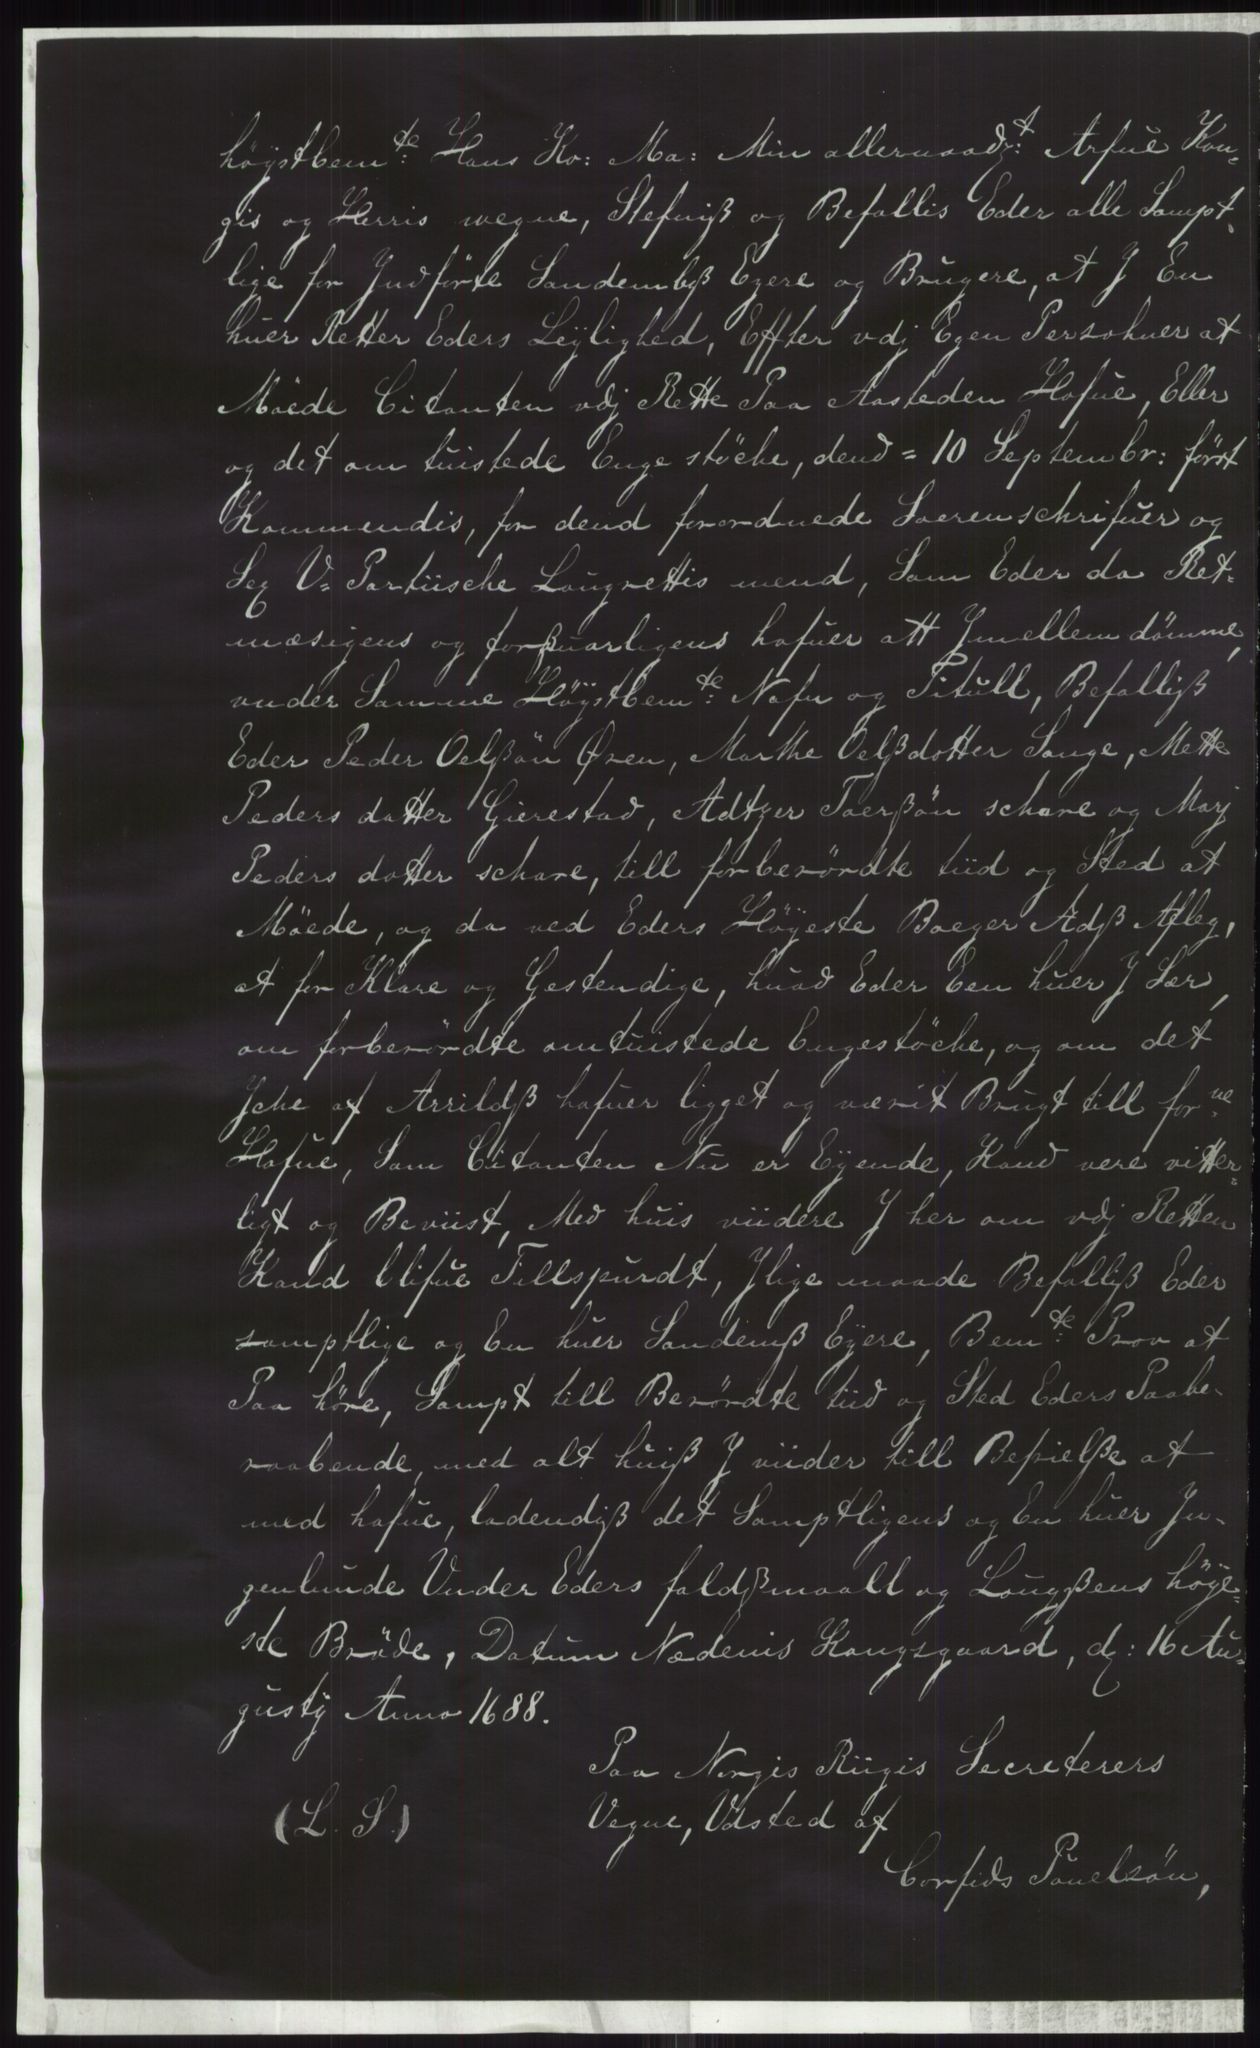 höÿstbemte: Hans Ko: Ma: Min allernaadzt: Arfue Kon-
gis og Herris wegne, Stefniß og Befallis Eder alle Sampt
lige for Jndförte Sandembß Eyere og Brugere, at J En
huer Retter Eders Leÿlighed, Effter vdj Egen Persohner at
Möede Citanten vdj Rette Paa Aasteden Hofue, Eller
og det om tuistede Enge stöche, dend = 10 Septembr: först
Kommendis, for dend forordnede Soerenschrifuer og
Sex V= Partiische Lougrettis mend, Som Eder da Ret-
mæsigens og forßuarligens hafuer att Jmellem dömme,
vnder Samme Höÿstbemte: Nafn og Titull, Befalliß
Eder Peder Oelßön Øren, Marthe Oelßdotter Sange, Mette
Peders datter Gierestad, Adtzer Toerßön schare og Marj
Peders dotter schare, till forberördte tiid og Sted at
Möede, og da ved Eders Höÿeste Boeger Ædß Afleg,
at for Klare og Gestendige, huad Eder Een huer J Sær,
om forberördte omtuistede Engestöche, og om det
Jche af Arrildß hafuer ligget og værit Brugt till forne
Hofue, Som Citanten Nu er Eÿende, Kand vere vitter-
ligt og Beviist, Med huis viidere J her om vdj Retten
Kand blifue Tillspurdt, Jlige maade Befalliß Eder
samptlige og En huer Sandemß Eÿere, Bemte: Prov at
Paa höre, Sampt till Berördte tiid og Sted Eders Paabe-
raabende, med alt huiß J viider till Befrielße at
med hafue, ladendiß det Samptligens og En huer Jn-
genlunde Vnder Eders faldßmaall og Lougßens höÿe-
ste Bröde, Datum Nædenis Kongsgaard, dz: 16 Au-
gustÿ Anno 1688.
Paa Norgis Riigis Secreterers
(L. S.) Vegne, Vdsted af
Corfids Pouelsön,